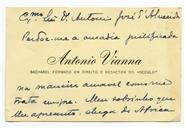 Exmo Sr. Dr. Antonio José d'Almeida
Perdôe-me a ousadia justificada
Antonio Vianna
BACHAREL FORMADO EM DIREITO E REDACTOR DO «SECULO»
na maneira amavel como me
trata sempre. Meu sobrinho que
lhe apresento, chega de Africa